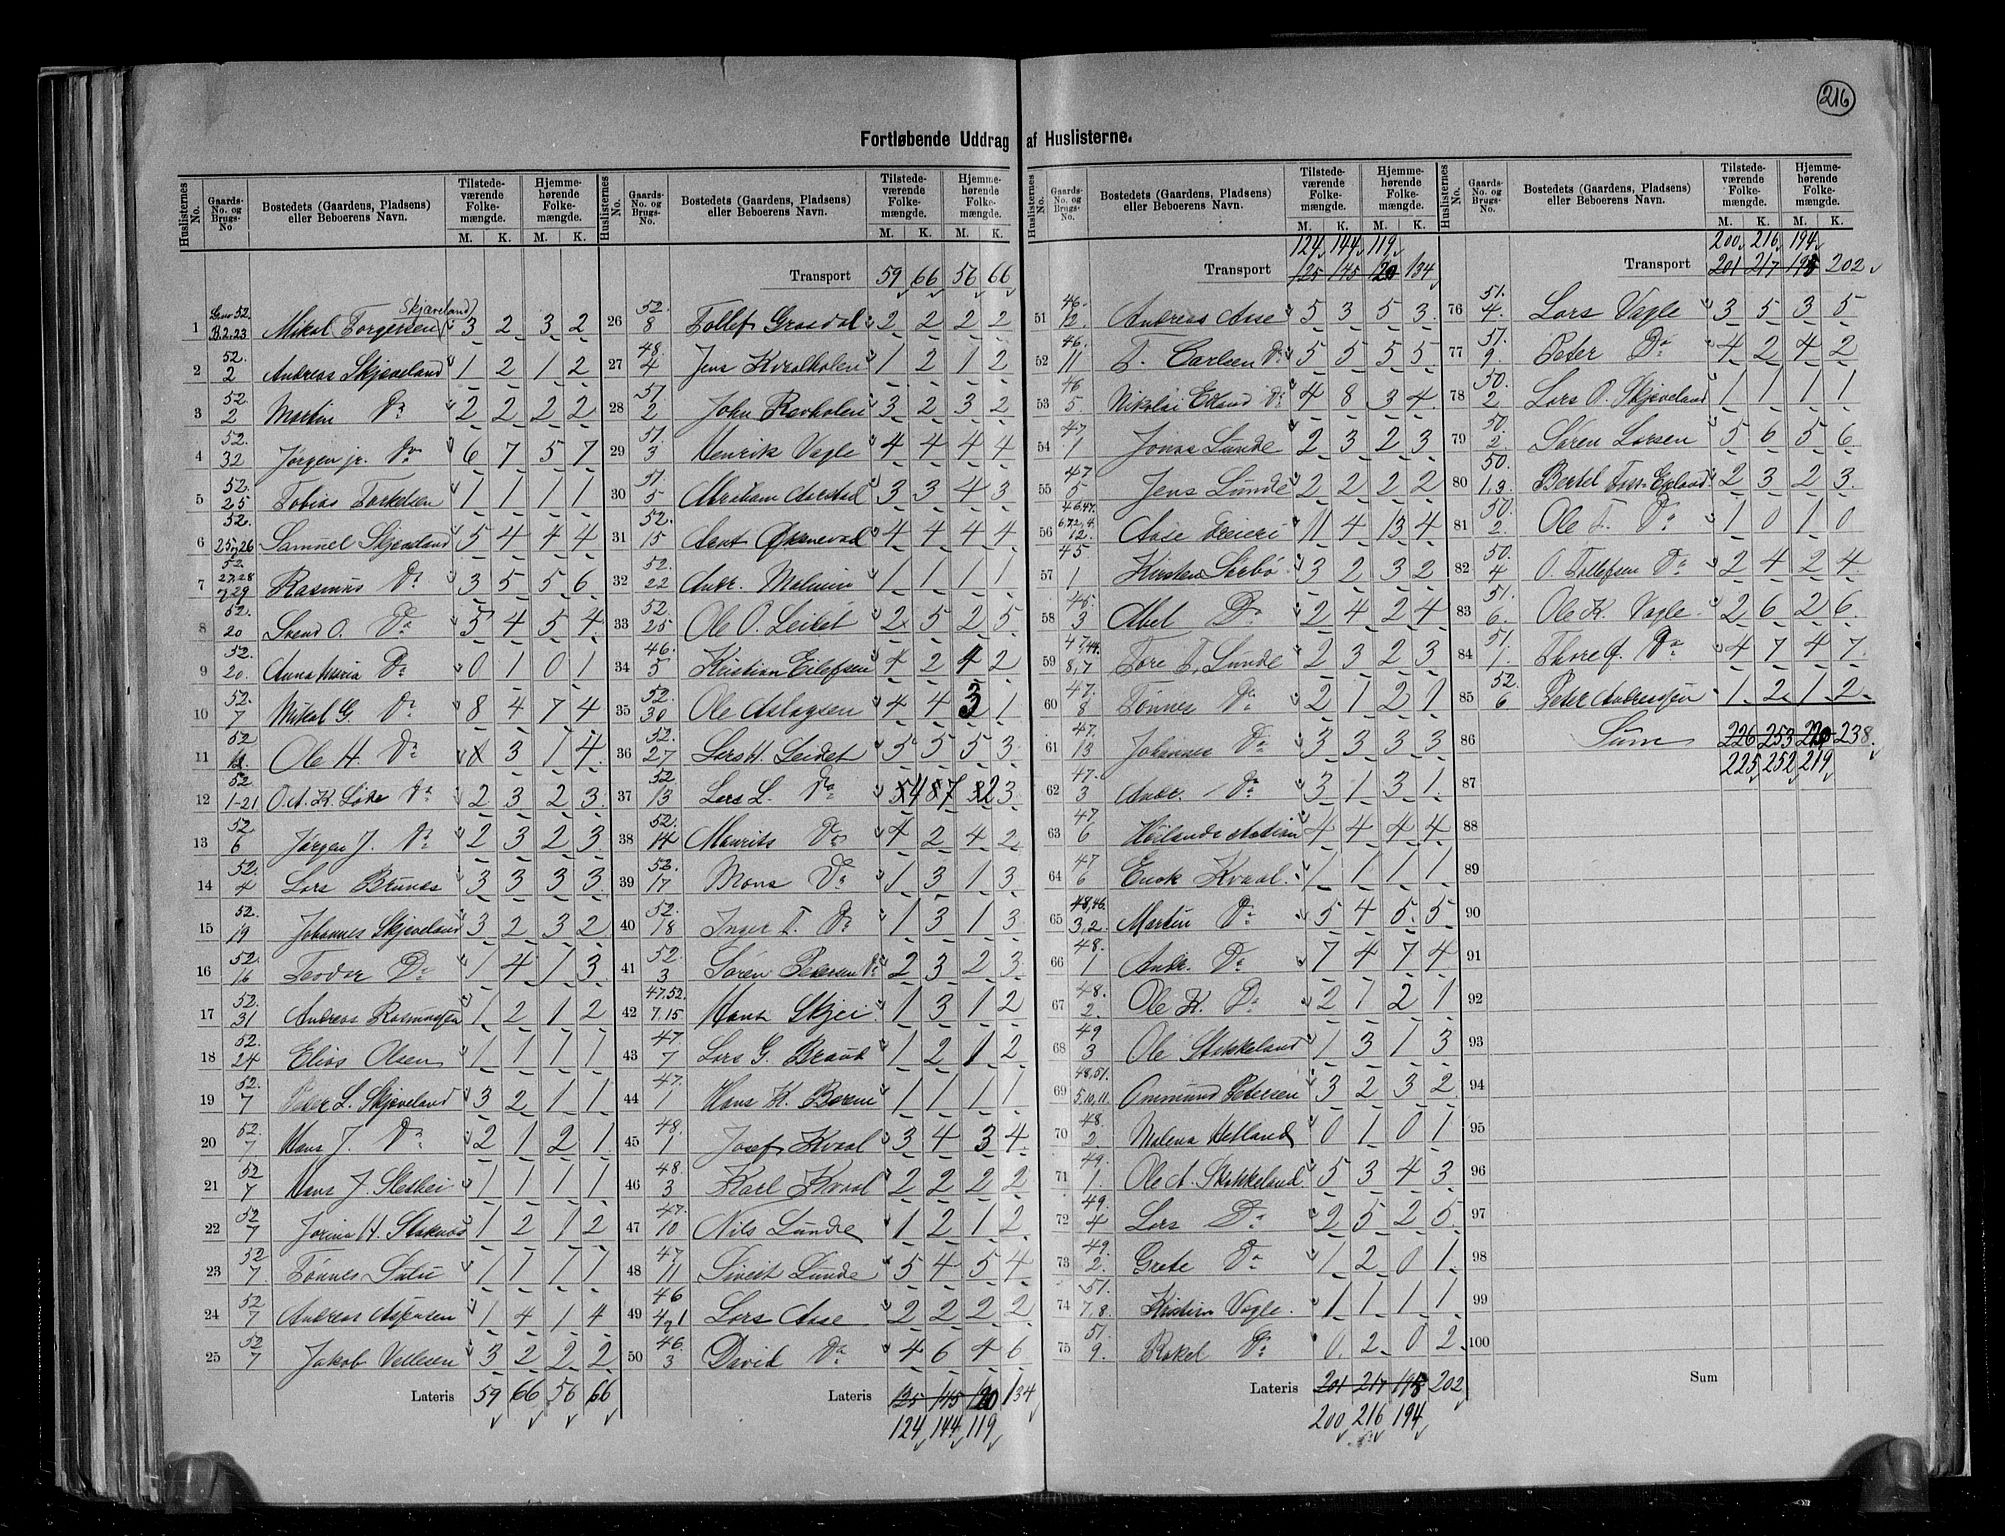 216
Fortløbende Uddrag af Huslisterne.
Huslisternes No. Gaards-No. og Brugs-No. Bostedets (Gaardens, Pladsens) eller Beboerens Navn. Tilstedeværende Folkemængde. M. K. Hjemmehørende Folkemængde. M. K.
1 Gr.no 52. B. 2.23 Mikal Torgersen (Skjæveland) 3 2 3 2
2 52. 2 Andreas Skjæveland 1 2 1 2
3 52. 2 Martin Do 2 2 2 2
4 52. 32 Jørgen jr. Do 6 7 5 7
5 52. 25 Tobias Torkelsen 1 1 1 1
6 52. 25,26 Samuel Skjæveland 5 4 4 4
7 52. 27,28 29 Rasmus Do 3 5 5 6
8 52. 20 Svend O. Do 5 4 5 4
9 52. 20. Anna Maria Do 0 1 0 1
10 52. 7 Mikal G. Do 8 4 7 4
11 52 Ole H. Do 3 1 4
12 52. 1-21 O. A. K. Do 2 3 2 3
13 52. 6 Jørgen J. Do 2 3 2 3
14 52. 4 Lars Brunes 3 3 3 3
15 52. 19 Johannes Skjæveland 3 2 3 2
16 52. 16 Teodor Do 1 4 1 3
17 52. 31 Andreas Rasmussen 1 2 1 2
18 52. 24 Elias Olsen 1 1 1 1
19 52. 7 L. Skjæveland 3 2 1 1
20 52. 7 Hans J. Do 2 1 2 1
21 52 7 Hans J. 1 1 1 1
22 52 7 Jorina H. 1 2 1 2
23 52 7 Tønnes 1 1 1 1
24 52 7 Andreas Aspersen 1 4 1 4
25 52 7 Jakob 3 2 2 2
Lateris 59 66 56 66
Huslisternes No. Gaards-No. og Brugs-No. Bostedets (Gaardens, Pladsens) eller Beboerens Navn. Tilstedeværende Folkemængde. M. K. Hjemmehørende Folkemængde. M. K.
Transport 59 66 56 66
26 52. 8 Tollef Grasdal 2 2 2 2
27 48. 4 Jens Kvalholen 1 2 1 2
28 51. 2 John Ravholen 3 2 3 2
29 51. 3 Henrik Vagle 4 4 4 4
30 51. 5 Abraham Aarstad 3 3 4 3
31 52. 15 Aant 4 4 4 4
32 52. 22 Andr. Malmin 1 1 1 1
33 52. 25 Ole O. Leitet 2 5 2 5
34 46. 5 Kristian Eilefsen 4 2 4 2
35 52. 30 Ole Aslagsen 4 4 3 1
36 52. 27 Lars H. Leidet 5 5 5 3
37 52 13 Lars L. Do 4 7 2 3
38 52. 14 Maurits Do 4 2 4 2
39 52. 17 Mons Do 1 3 1 3
40 52. 18 Inger T. Do 1 3 1 3
41 52. 3 Søren Petersen Do 2 3 2 3
42 47.52. 7.15 Hans Skjei 1 3 1 2
43 47. 7 Lars G. Braut 1 2 1 2
44 47. 1 Hans K. Boren 1 1 1 1
45 48. 1 Josef Kvaal 3 4 3 4
46 48. 3 Karl Kvaal 2 2 2 2
47 47. 10 Nils Lunde 1 2 1 2
48 47 11 Sivert Lunde 5 4 5 4
49 46 4 1 Lars Aase 2 2 2 2
50 46. 3 David Do 4 6 4 6
Lateris 125 145 120 134
124 144 119
Huslisternes No. Gaards-No. og Brugs-No. Bostedets (Gaardens, Pladsens) eller Beboerens Navn. Tilstedeværende Folkemængde. M. K. Hjemmehørende Folkemængde. M. K.
124 144 119
Transport 125 145 120 134
51 46. 12 Andreas Aase 5 3 5 3
52 46. 11 T. Carlsen Do 5 5 5 5
53 46 5 Nikolai Edland Do 4 8 3 4
54 47 1 Jonas Lunde 2 3 2 3
55 47. 5 Jens Lunde 2 2 2 2
56 46,47. 12. Aase 11 4 13 4
57 45 1 Kirsten Sørbø 3 2 3 2
58 45. 3 Abel Do 2 4 2 4
59 47,44. 8,7 Tore T. Lunde 2 3 2 3
60 47. 8 Tønnes Do 2 1 2 1
61 47. 13 Johannes Do 3 3 3 3
62 47. 3 Andr. Do 3 1 3 1
63 47 6 Høilands station 4 4 4 4
64 47 6 Enok Kvaal 1 1 1 1
65 48,46. 3,2 Martin Do 5 4 5 5
66 48. 1 Andr. Do 7 4 7 4
67 48. 2. Ole K. Do 2 1 2 1
68 49 3 Ole Stokkeland 1 3 1 3
69 48,51. 5,10,11. Ommund Petersen 3 2 3 2
70 48. 2. Malena Hetland 0 1 0 1
71 49. 1. Ole A. Stokkeland 5 3 4 3
72 49. 4 Lars Do 2 5 2 5
73 49. 2. Grete Do 1 2 0 1
74 51. 7,8. Kristian Vagle 1 1 1 1
75 51. 9. Rakel Do 0 2 0 2
Lateris 201 217 195 202
200 216 194
Huslisternes No. Gaards-No. og Brugs-No. Bostedets (Gaardens, Pladsens) eller Beboerens Navn. Tilstedeværende Folkemængde. M. K. Hjemmehørende Folkemængde. M. K.
200 216 194
Transport 201 217 195 202
76 51. 4. Lars Vagle 3 5 3 5
77 51. 9. Peter Do 4 2 4 2
78 50. 2 Lars O. Skjæveland 1 1 1 1
79 50. 2 Søren Larsen 5 6 5 6
80 50. 1.3 Bertel 2 3 2 3
81 50. 2 Ole T. Do 1 0 1 0
82 50. 4 O. Tollefsen Do 2 4 2 4
83 51. 6. Ole K. Vagle 2 6 2 6
84 51. 1. Thore G. Do 4 7 4 7
85 52. 6 Peter Andreassen 1 2 1 2
86 Sum 226 253 220 238
225 252 219
87
88
89
90
91
92
93
94
95
96
97
98
99
100
Sum